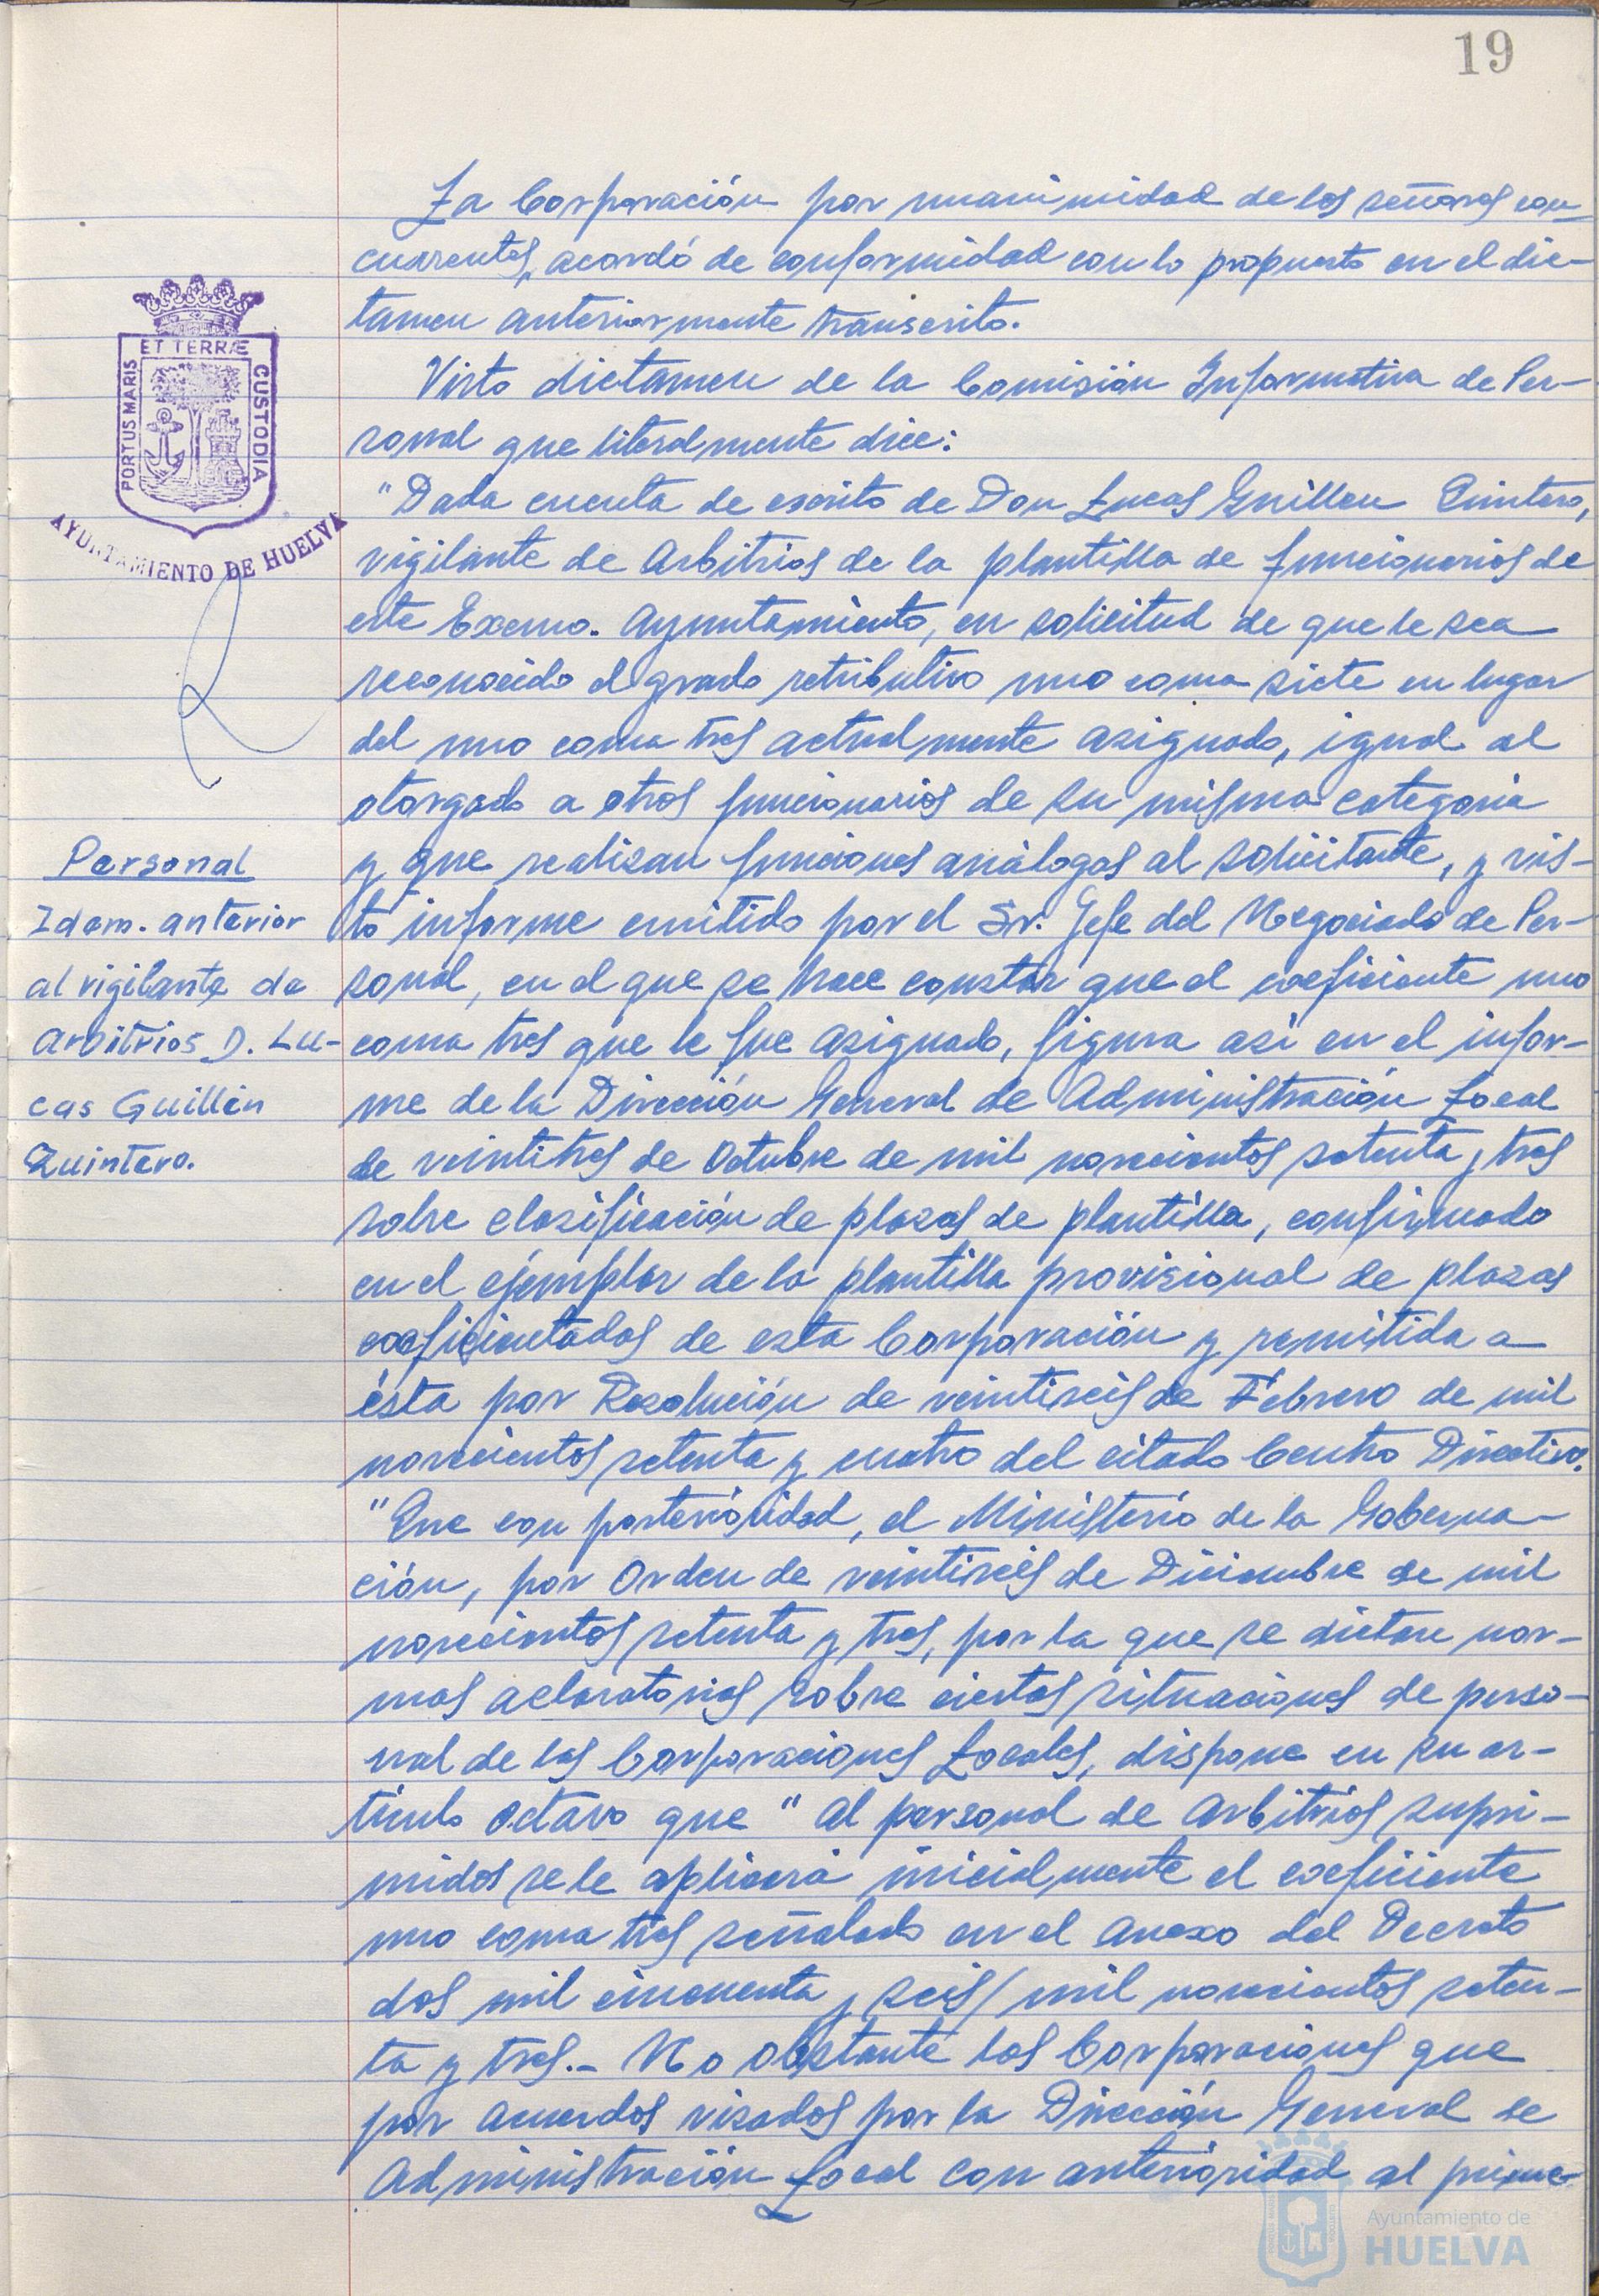 19
La Corporación por unanimidad de los señores con-
currentes, acordó de conformidad con lo propuesto en el dic-
tamen anteriormente transcrito.
Visto dictamen de la Comisión Informativa de Per-
sonal que literalmente dice:
"Dada cuenta de escrito de Don Lucas Guillen Quintero,
vigilante de Arbitrios de la plantilla de funcionarios de
este Excmo. Ayuntamiento, en solicitud de que le sea
reconocido el grado retributivo uno coma siete en lugar
del uno coma tres actualmente asignado, igual al
otorgado a otros funcionarios de su misma categoria
y que realizan funciones análogas al solicitante, y vis-
to informe emitido por el Sr. Jefe del Negociado de Per-
sonal, en el que se hace constar que el coeficiente uno
coma tres que le fue asignado, figura asi en el infor-
me de la Dirección General de Administración Local
de veintitres de Octubre de mil novecientos setenta y tres
sobre clasificación de plazas de plantilla, confirmado
en el ejemplar de la plantilla provisional de plazas
coeficientadas de esta Corporación y remitida a
ésta por Resolución de veintiseis de Febrero de mil
novecientos setenta y cuatro del citado Centro Directivo.
"Que con posterioridad, el Ministerio de la Goberna-
ción, por Orden de veintiseis de Diciembre de mil
novecientos setenta y tres, por la que se dictan nor-
mas aclaratorias sobre ciertas situaciones de perso-
nal de las Corporaciones Locales, dispone en su ar-
tículo octavo que "al personal de Arbitrios supri-
midos se le aplicará inicialmente el coeficiente
uno coma tres señalado en el anexo del Decreto
dos mil cincuenta y seis/mil novecientos seten-
ta y tres.- No obstante las Corporaciones que
por acuerdos visados por la Dirección General de
Administración Local con anterioridad al prime-
ET TERRÆ
PORTUS MARIS
CUSTODIA
AYUNTAMIENTO DE HUELVA
Personal
Idem. anterior
al vigilante de
Arbitrios D. Lu-
cas Guillén
Quintero.
Ayuntamiento de
HUELVA